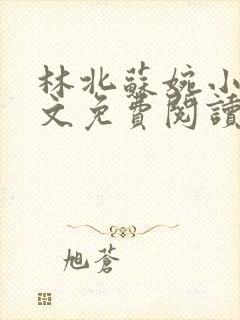 林北蘇婉小
文免費閱讀
旭蒼